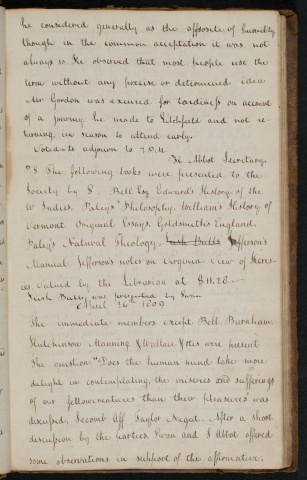 he considered generally as the opposite of humility
though in the common acceptation it was not
always so. He observed that most people use the
term without any precise or determined idea
Mr Gordon was excused for tardiness on account
of a journey he made to Litchfield and not re-
turning, in season to attend early.
Voted to adjourn to 7.P.M.
Abbot Secretary.
The following books were presented to the
Society by S. Bell Esq Edward's History of the
W Indies. Paley's Philosophy. William's History of
Vermont. Original Essays, Goldsmith's England,
Paley's Natural Theology, Irish Bulls Jefferson's
Manual, Jefferson's notes on Virginia View of Heres-
ies. Valued by the Librarian at $11.28.
Irish Bulls, was presented by Swan
April 26th 1809
The immediate members except Bell, Burnham
Hutchinson Manning & Wallace were present
The question "Does the human mind take more
delight in contemplating, the miseries and sufferings
of our fellowcreatures than their pleasures" was
discussed, Secomb Aff Taylor Negat. After a short
discussion by the parties Swan and Abbot offered
some observations in support of the affirmative.